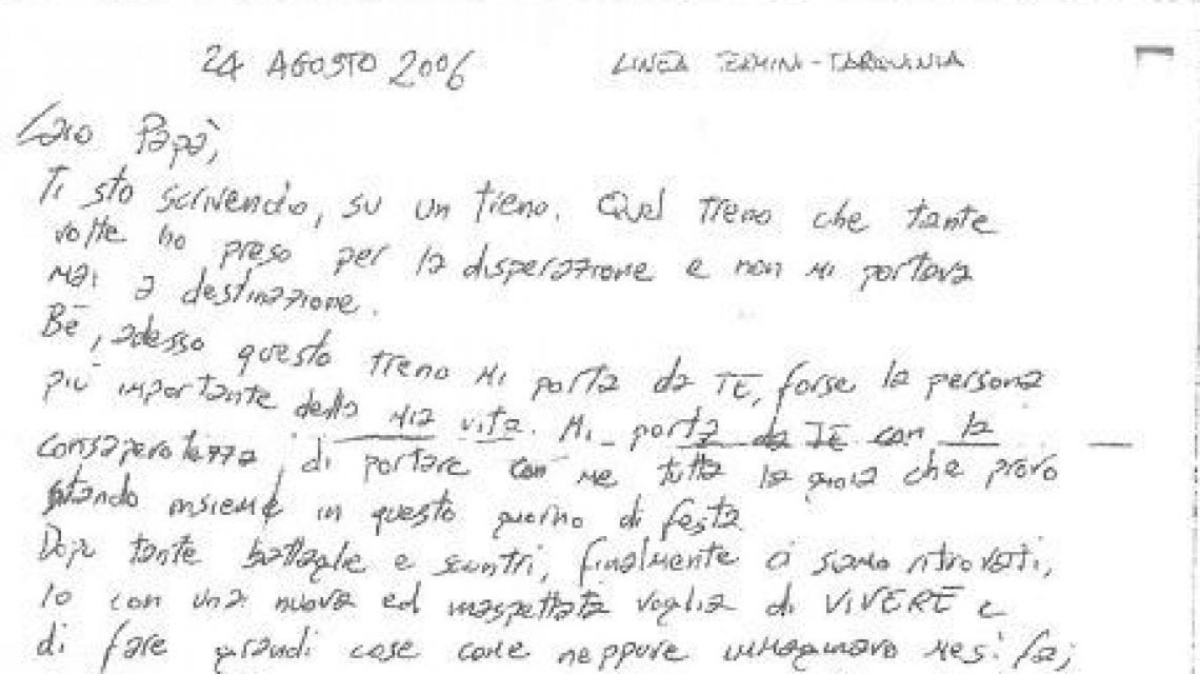 24 AGOSTO 2006 LINEA TERMINI-TARQUINIA
Caro Papà,
Ti sto scrivendo, su un treno. Quel treno che tante
volte ho preso per la disperazione e non mi portava
mai a destinazione.
Bè, adesso questo treno mi porta da TE, forse la persona
più importante della mia vita. Mi porta da TE con la
consapevolezza, di portare con me tutta la gioia che provo
stando insieme in questo giorno di festa
Dopo tante battaglie e scontri, finalmente ci siamo ritrovati,
Io con una nuova ed inaspettata voglia di VIVERE e
di fare grandi cose come neppure immaginavo mesi fa;